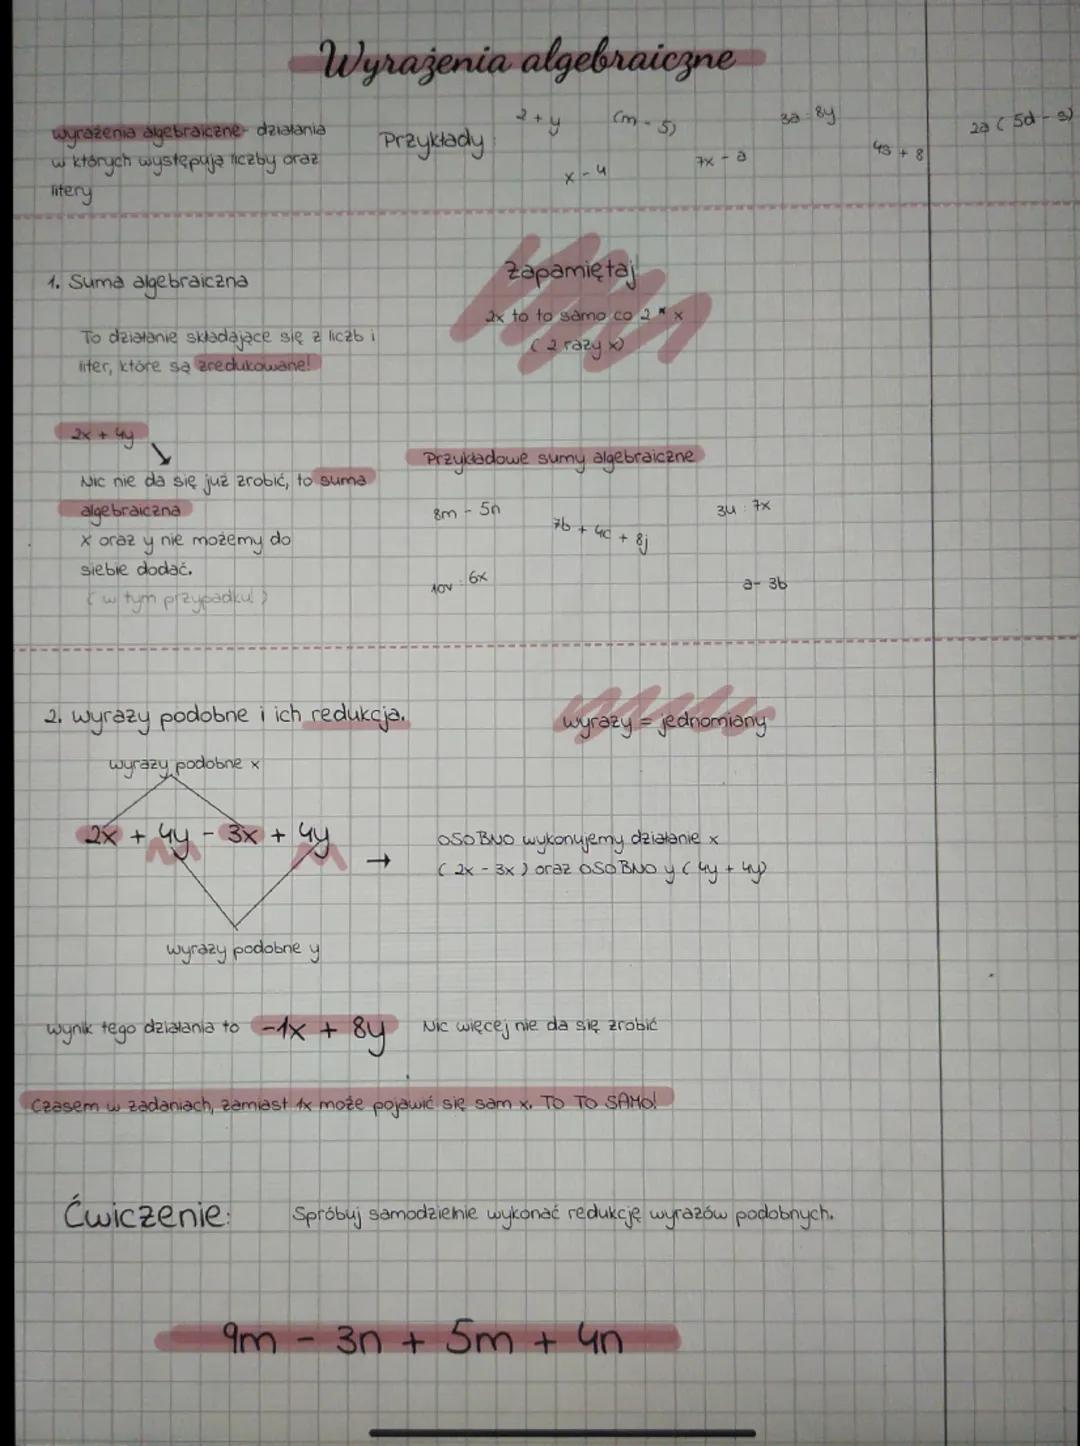 Wyrażenia algebraiczne
wyrażenia algebraiczne- działania
w których występują liczby oraz
litery
Przykłady:
2 + y
(m - 5)
3a : 8y
2a ( 5d - s)
x - 4
7x - a
4s + 8
1. Suma algebraiczna
To działanie składające się z liczb i
liter, które są zredukowane!
Zapamiętaj
2x to to samo co 2 * x
( 2 razy x)
2x + 4y
Nic nie da się już zrobić, to suma
algebraiczna
x oraz y nie możemy do
siebie dodać.
( w tym przypadku! )
Przykładowe sumy algebraiczne
8m - 5n
7b + 4c + 8j
3u : 7x
10v : 6x
a- 3b
2. wyrazy podobne i ich redukcja.
wyrazy = jednomiany
wyrazy podobne x
2x + 4y - 3x + 4y →
OSOBNO wykonujemy działanie x
( 2x - 3x ) oraz OSOBNO y ( 4y + 4y)
wyrazy podobne y
wynik tego działania to -1x + 8y Nic więcej nie da się zrobić
Czasem w zadaniach, zamiast 1x może pojawić się sam x. TO TO SAMO!
Ćwiczenie: Spróbuj samodzielnie wykonać redukcję wyrazów podobnych.
9m - 3n + 5m + 4n